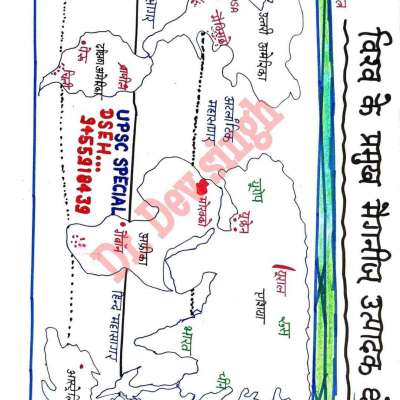 विश्व के प्रमुख मैंगनीज उत्पादक
USA
उत्तरी अमेरिका
मेक्सिको
अटलांटिक
महासागर
दक्षिण अमेरिका
ब्राजील
पेरू
चिली
यूरोप
यूक्रेन
मोरक्को
यूराल
रूस
एशिया
अफ्रीका
गैबॉन
हिन्द महासागर
भारत
चीन
UPSC SPECIAL
DSEH....
9455918439
Dr Dev singh